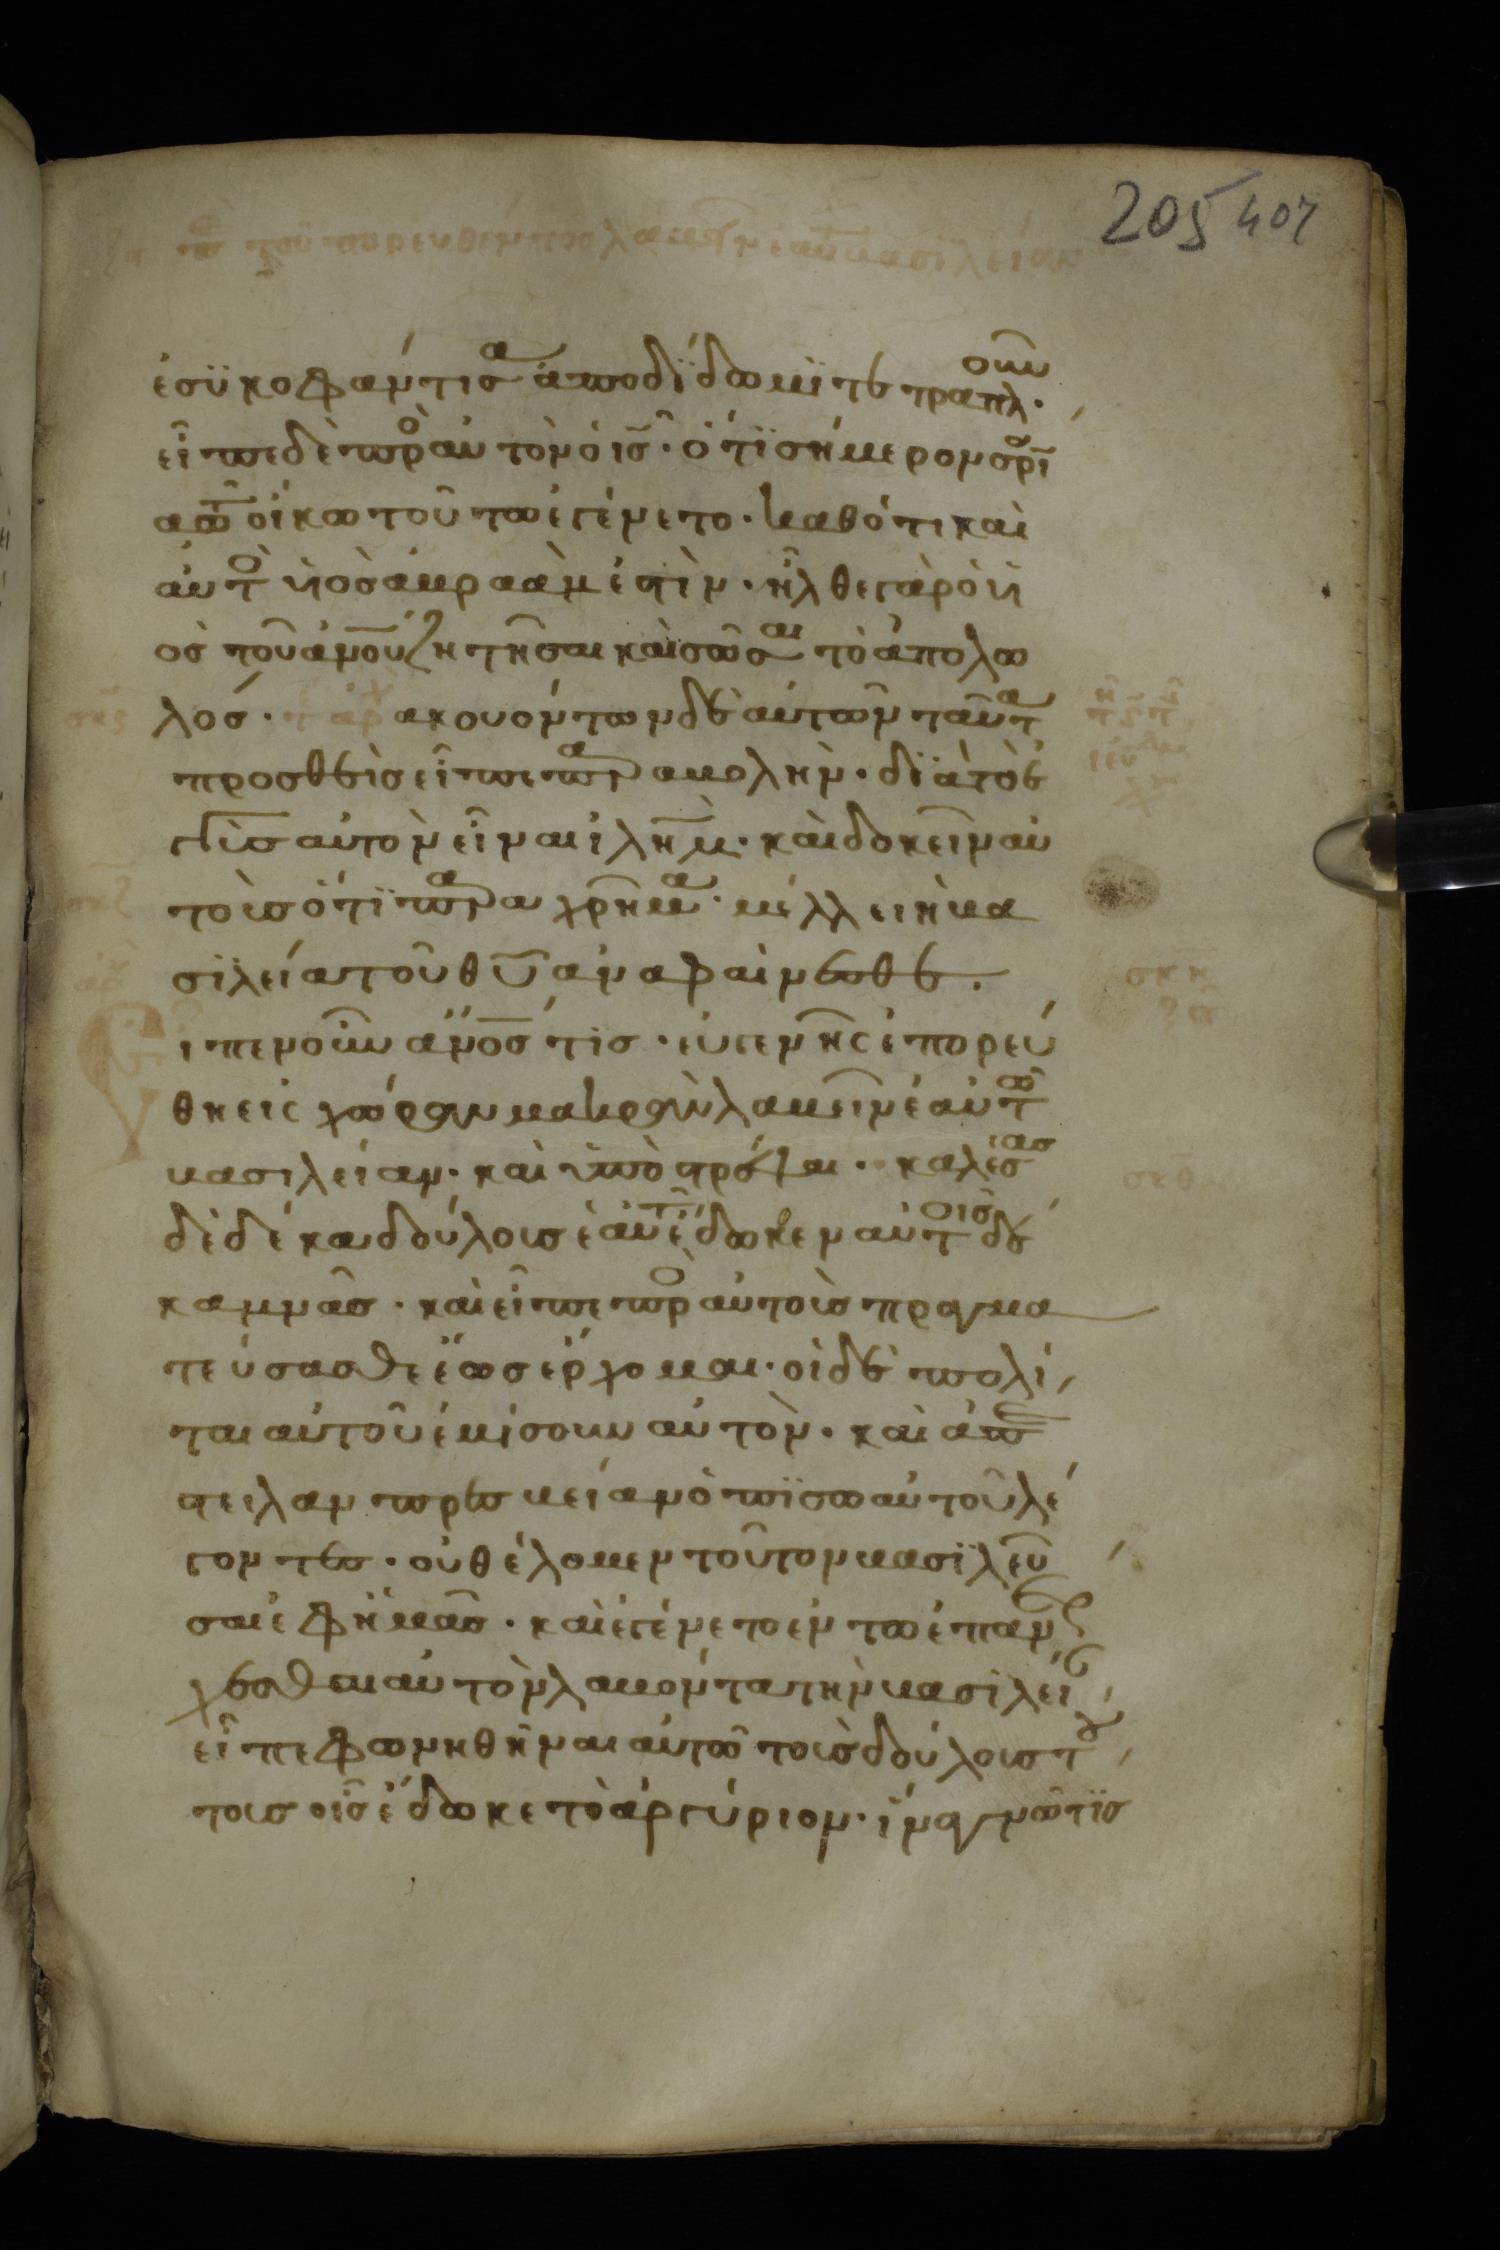 205 407
ἐσϋκοφάντισα ἀποδΐδωμϊ τετραπλοῦν·
εἶπε δὲ πρὸς αὐτὸν ὁ ις· ὅτϊ σήμερον σρϊ
α τῶ οἴκω τούτω ἐγένετο· καθότι καὶ
αὐτὸς ϋἱὸς ἀβραὰμ ἐστὶν· ἦλθε γὰρ ὁ ϋἱ
ὸς τοῦ ἀνου ζητῆσαι καὶ σῶσαι τὸ ἀπολω
λός· ἀκουόντων δὲ αὐτῶν ταῦτα
προσθεὶς εἶπε παραβολὴν· δϊὰ τὸ ἐ
γγὺς αὐτὸν εἶναι ἰλημ· καὶ δοκεῖν αὐ
τοὺς ὅτϊ παραχρῆμα· μέλλει ἡ βα
σϊλεία τοῦ θυ ἀναφαίνεσθε.
εἶπεν οὖν ἀνος τὶς· εὐγενὴς ἐπορεύ
θη εἰς χώραν μακρὰν λαβεῖν ἑαυτῶ
βασιλείαν· καὶ ὑποστρέψαι· καλέσας
δὲ δέκα δούλους ἑαυτοῦ ἔδωκεν αὐτοῖς δέ
κα μνᾶς· καὶ εἶπε πρὸς αὐτοὺς πραγμα
τεύσασθε ἕως ἔρχομαι· οἱ δὲ πολῖ
ται αὐτοῦ ἐμίσουν αὐτὸν· καὶ ἀπέ
στειλαν πρεσβείαν ὀπϊσω αὐτοῦ λέ
γοντες· οὐ θέλομεν τοῦτον βασϊλεῦ
σαι ἐφ ἡμᾶς· καὶ ἐγένετο ἐν τῶ ἐπανελ
θεῖν αὐτὸν λαβόντα τὴν βασιλεί
εἶπε φωνηθῆναι αὐτῶ τοὺς δούλους τού
τους οἷς ἔδωκε τὸ ἀργύριον· ἵνα γνῶ τϊς